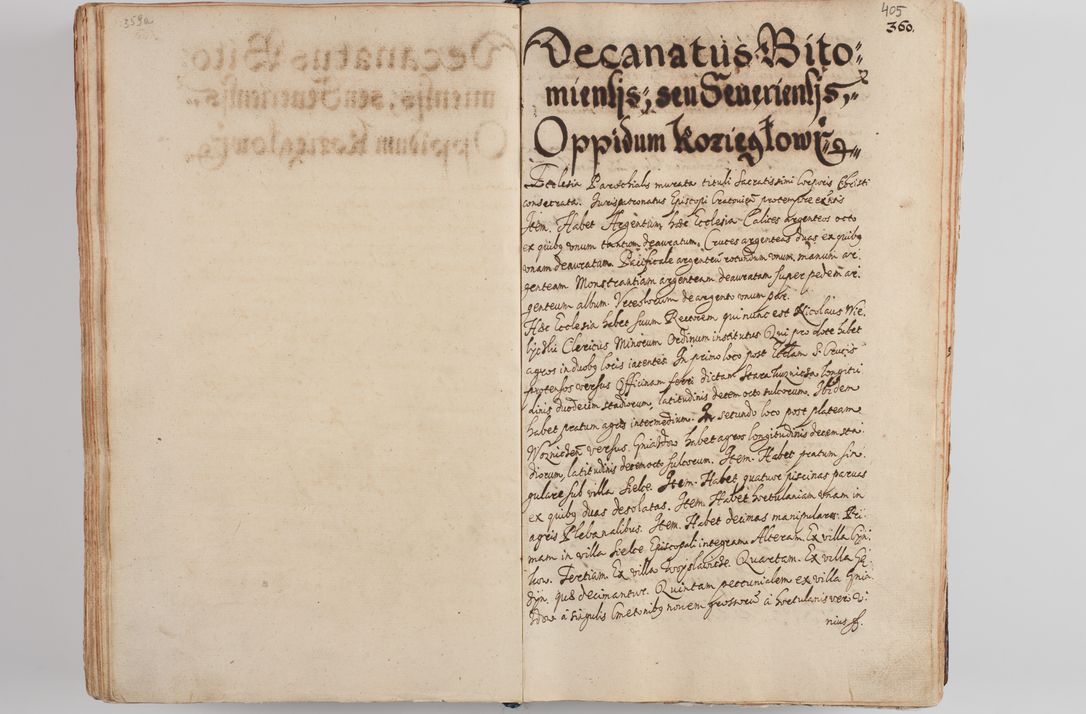 359a
405
360.
Decanatus Bito-
miensis, seu Seueriensis,
Oppidum Koziegłowy
Ecclesia Parochialis murata tituli Sacratissimi Corporis Christi
consecrata. Jurispatronatus Episcopi Cracouien̄ pro tempore exn̄tis
Item. Habet Argentum haec Ecclesia Calices Argenteos octo
ex quibꝫ vnum tantum deauratum. Cruces argenteas duas ex quibꝫ
vnam deauratam. Pacificale argenteū rotundum vnum, manum ar-
genteam. Monstrantiam argenteam deauratam super pedem ar-
genteum album. Vrceolorum de argento vnum par.
Haec Ecclesia habet suum Rectorem qui nunc est Nicolaus Wie-
Clericus Minorum Ordinum institutus Qui pro dote habet
agros in duobꝫ locis iacentes. In primo loco post Eccl̄am S. Crucis
protensos versus Officinam ferri dictam Stara kuznicza longitu-
dinis duodecim stadiorum, latitudinis decem octo sulcorum. Ibidem
habet pratum agris intermedium. In secundo loco post plateam
Woznicen̄ versus Gniazdow habet agros longitudinis decem sta-
diorum, latitudinis decem octo sulcorum. Item. Habet pratum sin-
gulare sub villa Sielce. Item. Habet quatuor piscinas paruas
ex quibꝫ duas desolatas. Item. Habet hortulaniam vnam in
agris Plebanalibus. Item. Habet decimas manipulares. Pri-
mam in villa Sielce Episcopali integram. Alteram. Ex villa
Tertiam. Ex villa Quartam. Ex villa
quae decimantur. Quintam pecunialem ex villa Gnia-
zdow a singulis Cmetonibꝫ nouem grossorū a hortulanis vero